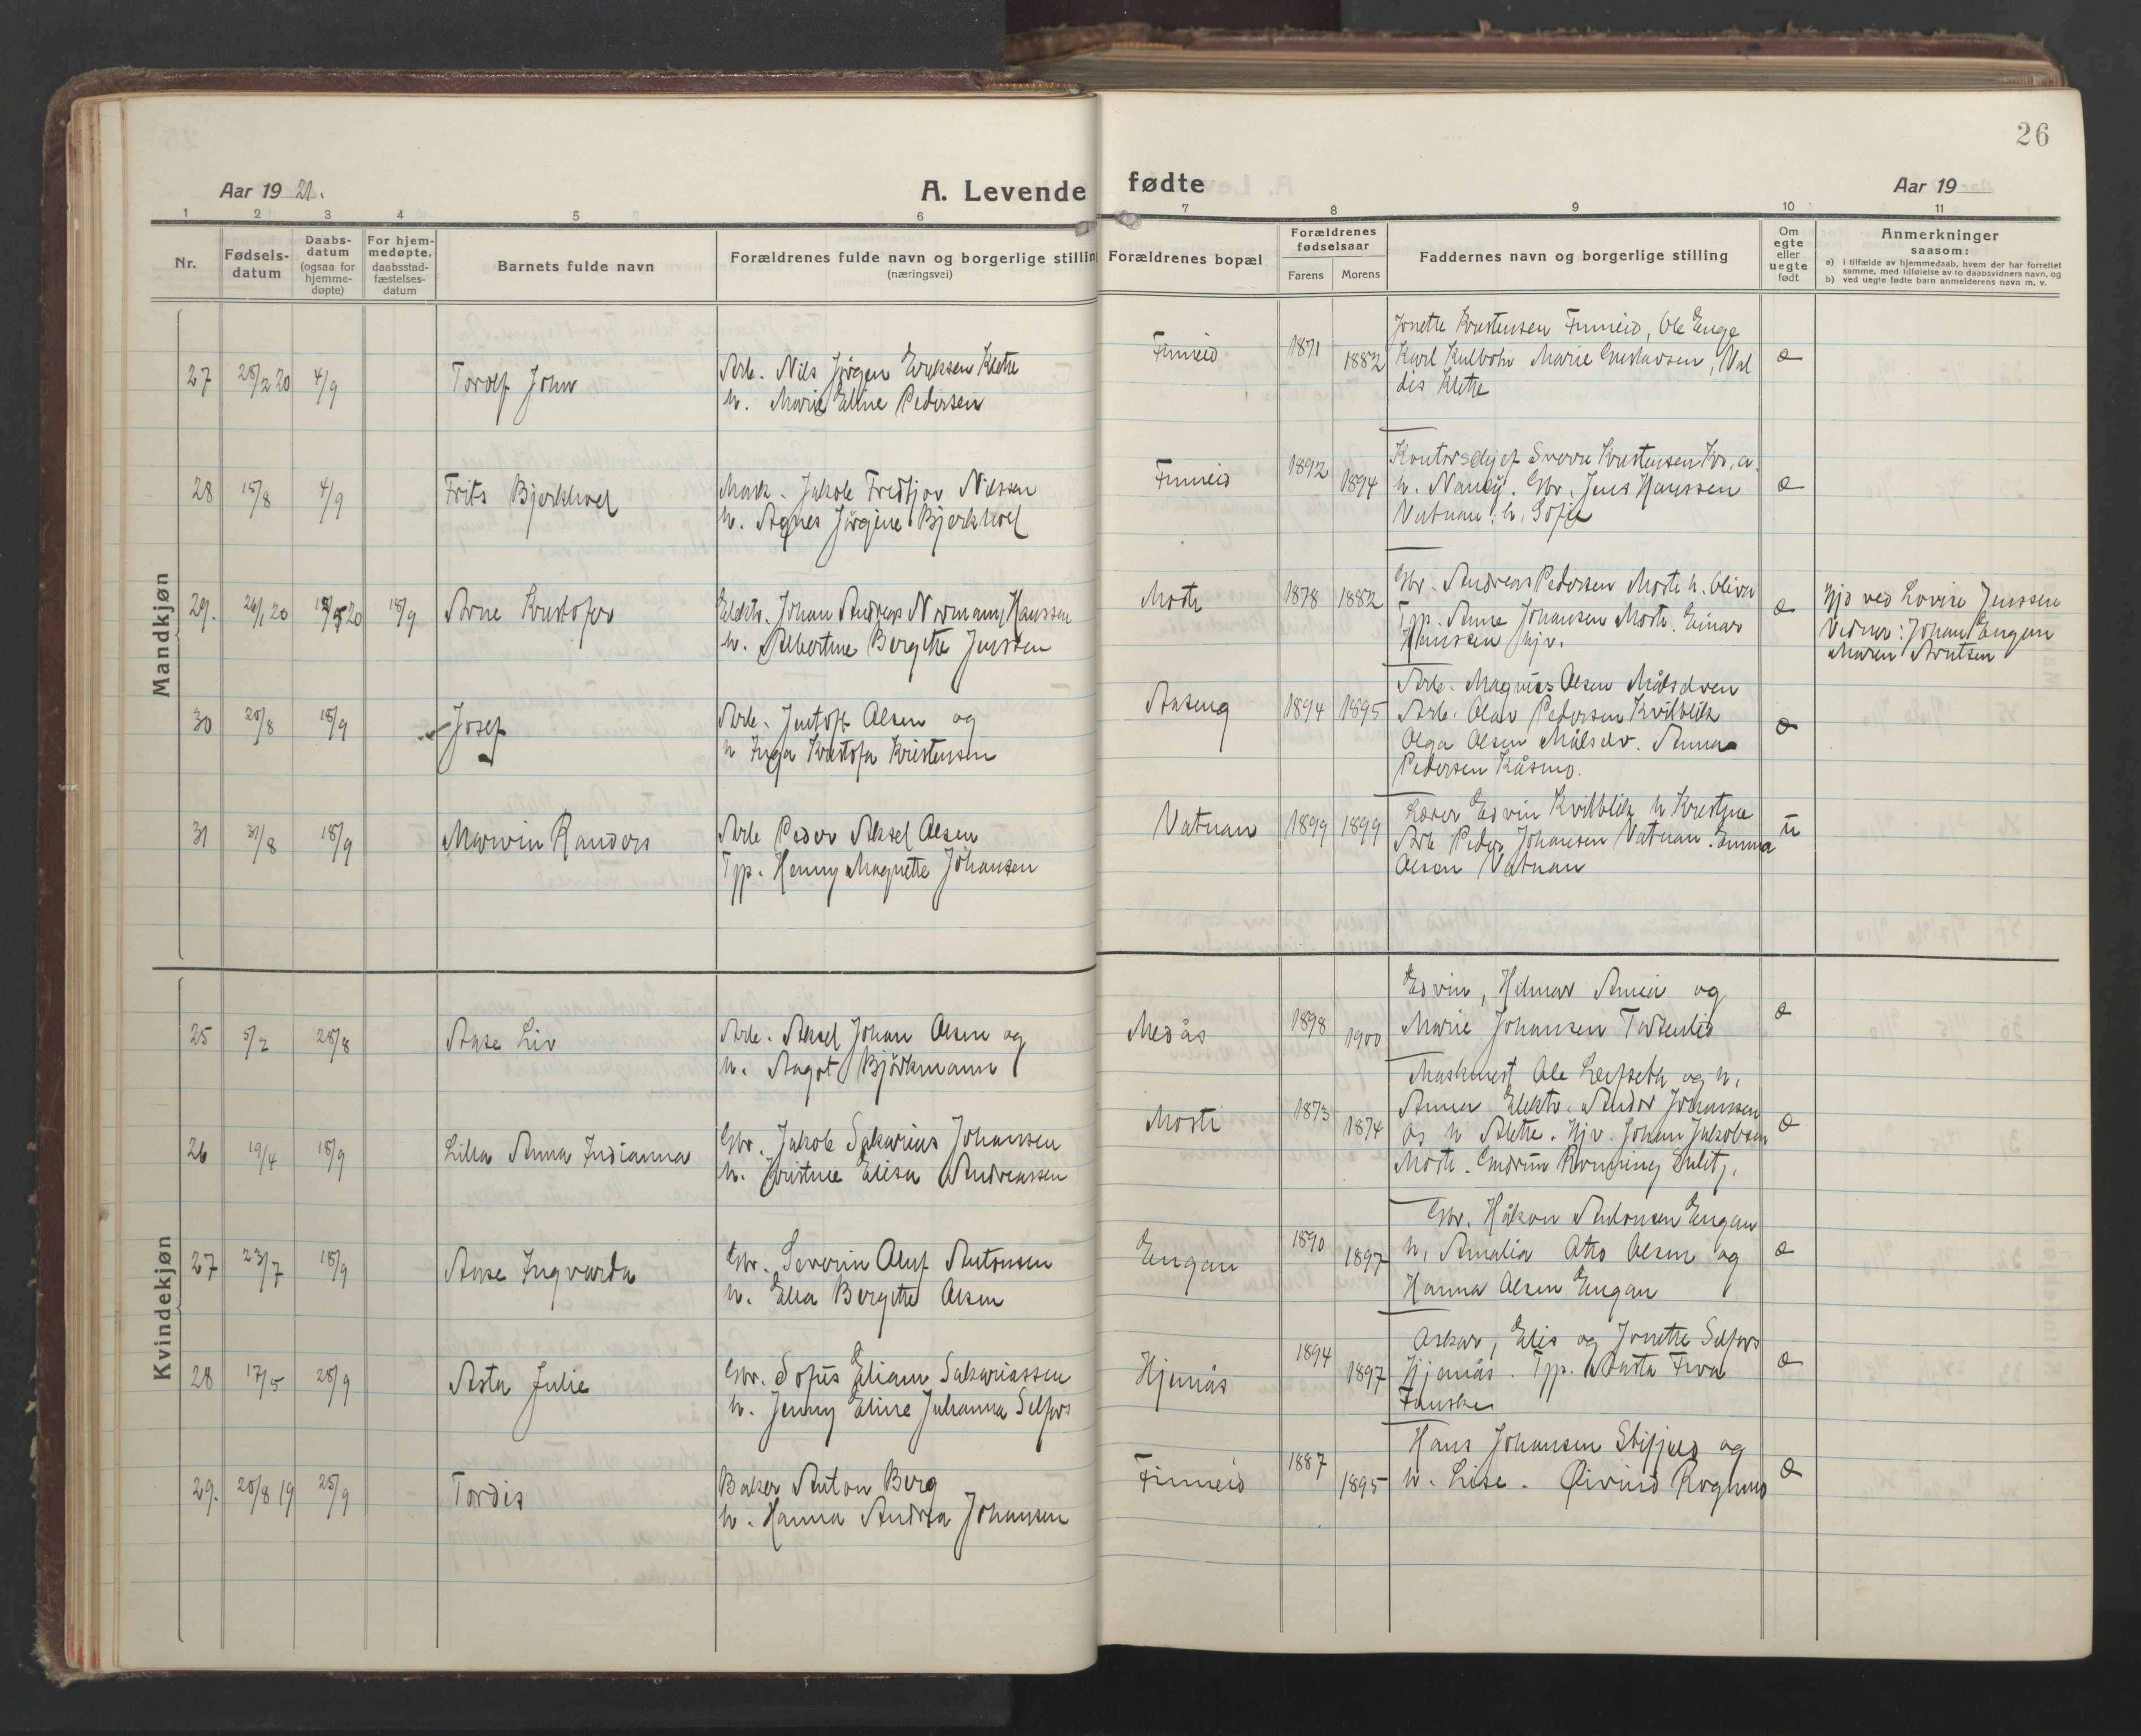 26
Aar 19 21.
A. Levende
fødte
Aar 19
1 2 3 4 5 6 7 8 9 10 11
Nr.
Fødsels-
datum
Daabs-
datum
(ogsaa for
hjemme-
døpte)
For hjem-
medøpte,
daabsstad-
fæstelses-
datum
Barnets fulde navn
Forældrenes fulde navn og borgerlige stillin
(næringsvei)
Forældrenes bopæl
Forældrenes
fødselsaar
Farens
Morens
Faddernes navn og borgerlige stilling
Om
egte
eller
uegte
født
Anmerkninger
saasom:
a) i tilfælde av hjemmedaab, hvem der har forrettet
samme, med tilføielse av to daabsvidners navn, og
b) ved uegte fødte barn anmelderens navn m. v.
Mandkjøn
27 28/2 20 4/9 Torolf John
Arb. Nils Jørgen Eriksen Klette
h. Marie Eline Pedersen
Finneid 1871 1882
Jonette Kristensen Finneid, Ole Enge
Karl Kulbotn Marie Gustavsen, Val
dis Klette
e
28 15/8 4/9 Frits Bjerkhoel
Mask. Jakob Fredtjov Nilssen
h. Agnes Jørgine Bjerkhoel
Finneid 1892 1894
Kontorschef Sverre Kristensen
h. Nancy. Gbr. Jens Hanssen
Vatnan h. Sofie
e
29. 26/1 20 20 18/9 Arne Kristofer
Elektr. Johan Andreas Normann Hanssen
h. Albertine Bergitte Jenssen
Mosti 1878 1882
Gbr. Andreas Pedersen Mosti h. Oliva
Tpp. Anne Johansen Mosti. Einar
Hanssen hjv.
e
Hjd ved Lovise Jenssen
Vidner: Johan Engan
Maren Arntsen
30 20/8 18/9 Josef
Arb. Jentoft Olsen og
h Inga Kristofa Kristensen
Aaseng 1894 1895
Arb. Magnus Olsen
Arb. Olav Pedersen Kvikblik
Olga Olsen Anna
Pedersen Kåsmo.
e
31 31/8 18/9 Marvin Randors
Arb Peder Aksel Olsen
Tjp. Henny Magnette Johansen
Vatnan 1899 1899
Lærer Edvin Kvikblik h Kristine
Arb Peder Johansen Vatnan. Emma
Olsen Vatnan
u
Kvindekjøn
25 5/2 28/8 Aase Liv
Arb. Aksel Johan Olsen og
h. Aagot Björkmann
Medås 1898 1900
Edvin, Hilmar Anna og
Marie Johansen Tortenlid
e
26 19/4 18/9 Lilla Anna Indianna
Gbr. Jakob Sakarias Johanssen
h. Kristine Elisa Andreassen
Mosti 1873 1874
Maskmest Ole Leifseth og h.
Anna Elektr. Andor Johanssen
og h Alette. Hjv. Johan Jakobsen
Mosti. Gudrun Rønning
e
27 23/7 18/9 Aase Ingvarda
Gbr. Severin Oluf Antonsen
h. Ella Bergitte Olsen
Engan 1890 1897
Gbr. Håkon Antonsen Engan
h. Amalia Otto Olsen og
Hanna Olsen Engan
e
28 17/5 28/9 Asta Julie
Gbr. Sofus Eliam Sakariassen
h. Jenny Eline Julianna Selfors
Hjemås 1894 1897
Oskar, Elis og Jonette Selfors
Hjemås. Tjp. Marta
Fauske
e
29. 20/8 19 25/9 Tordis
Baker Anton Berg
h. Hanna Andrea Johansen
Finneid 1887 1895
Hans Johansen og
h. Lise. Øivind Rognmo
e